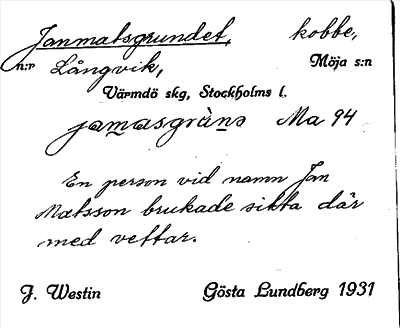 Janmatsgrundet, kobbe,
n:r Långvik, Möja s:n
Värmdö skg, Stockholms l.
jamasgrùnə Ma 94
En person vid namn Jan
Matsson brukade sitta där
med vettar.
J. Westin Gösta Lundberg 1931